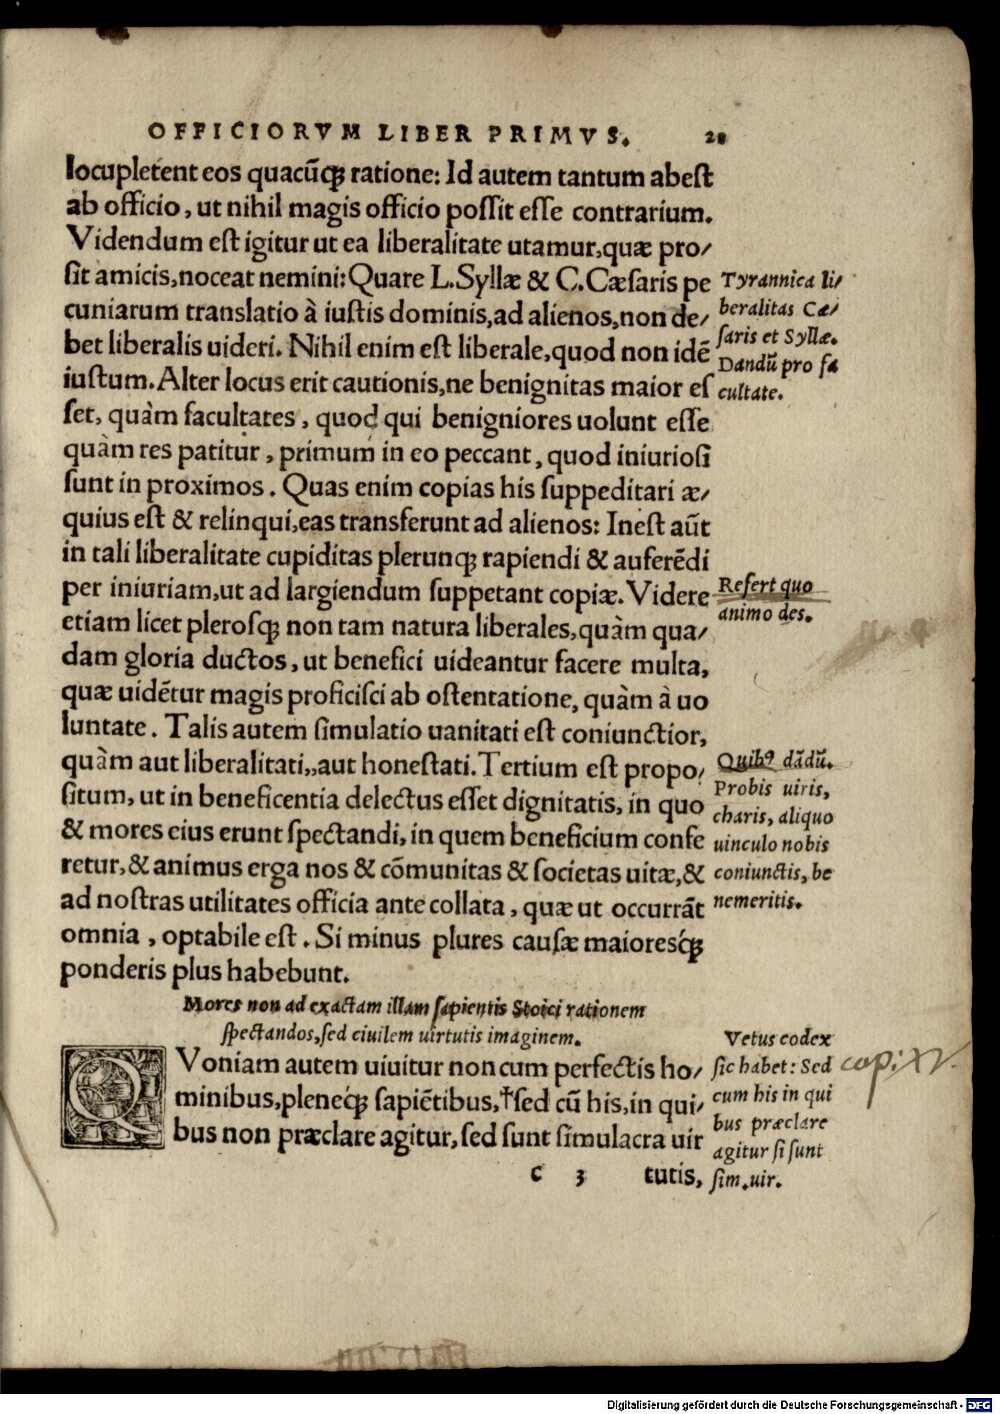 OFFICIORVM LIBER PRIMVS. 28
locupletent eos quacūq; ratione: Id autem tantum abest
ab officio, ut nihil magis officio possit esse contrarium.
Videndum est igitur ut ea liberalitate utamur, quæ pro/
sit amicis, noceat nemini: Quare L. Syllæ & C. Cæsaris pe
cuniarum translatio à iustis dominis, ad alienos, non de/
bet liberalis uideri. Nihil enim est liberale, quod non idē
iustum. Alter locus erit cautionis, ne benignitas maior es
set, quàm facultates, quod qui benigniores uolunt esse
quàm res patitur, primum in eo peccant, quod iniuriosi
sunt in proximos. Quas enim copias his suppeditari æ/
quius est & relinqui, eas transferunt ad alienos: Inest aūt
in tali liberalitate cupiditas plerunq; rapiendi & auferēdi
per iniuriam, ut ad largiendum suppetant copiæ. Videre
etiam licet plerosq; non tam natura liberales, quàm qua/
dam gloria ductos, ut benefici uideantur facere multa,
quæ uidētur magis proficisci ab ostentatione, quàm à uo
luntate. Talis autem simulatio uanitati est coniunctior,
quàm aut liberalitati,, aut honestati. Tertium est propo/
situm, ut in beneficentia delectus esset dignitatis, in quo
& mores eius erunt spectandi, in quem beneficium confe
retur, & animus erga nos & cōmunitas & societas uitæ, &
ad nostras utilitates officia ante collata, quæ ut occurrāt
omnia, optabile est. Si minus plures causæ maioresq́;
ponderis plus habebunt.
Mores non ad exactam illam sapientis Stoici rationem
spectandos, sed ciuilem uirtutis imaginem.
QVoniam autem uiuitur non cum perfectis ho/
minibus, pleneq́; sapiētibus, †sed cū his, in qui/
bus non præclare agitur, sed sunt simulacra uir
c 3 tutis,
Tyrannica li/
beralitas Cæ/
saris et Syllæ.
Dandū pro fa
cultate.
Refert quo
animo des.
Quibꝰ dādū.
Probis uiris,
charis, aliquo
uinculo nobis
coniunctis, be
nemeritis.
Vetus codex
sic habet: Sed
cum his in qui
bus præclare
agitur si sunt
sim. uir.
cap: XV.
Digitalisierung gefördert durch die Deutsche Forschungsgemeinschaft - DFG